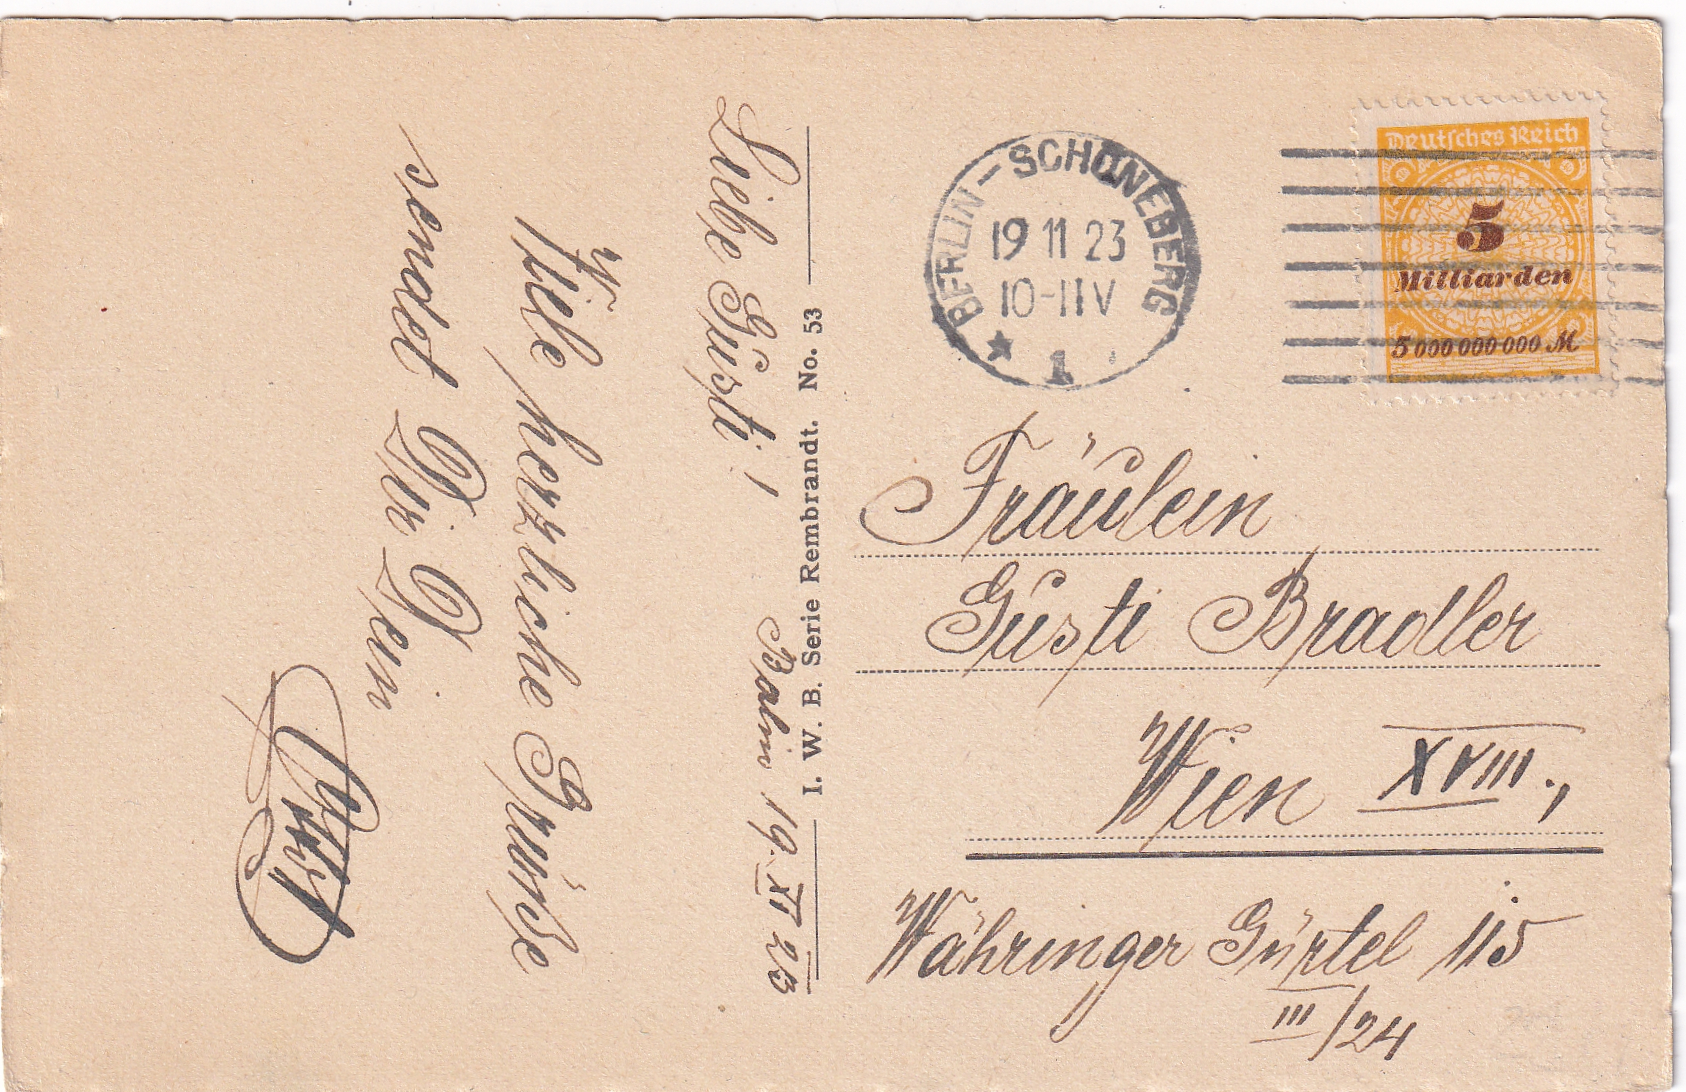 Liebe Gusti!
19. XI 23
Viele herzliche Grüße
sendet Dir Dein
I. W. B. Serie Rembrandt. No. 53
BERLIN-SCHÖNEBERG
19 11 23
10-11 V
* 1
Deutsches Reich
5
Milliarden
5 000 000 000 M
Fräulein
Gusti Bradler
Wien XVIII.,
Währinger Gürtel 115
III/24